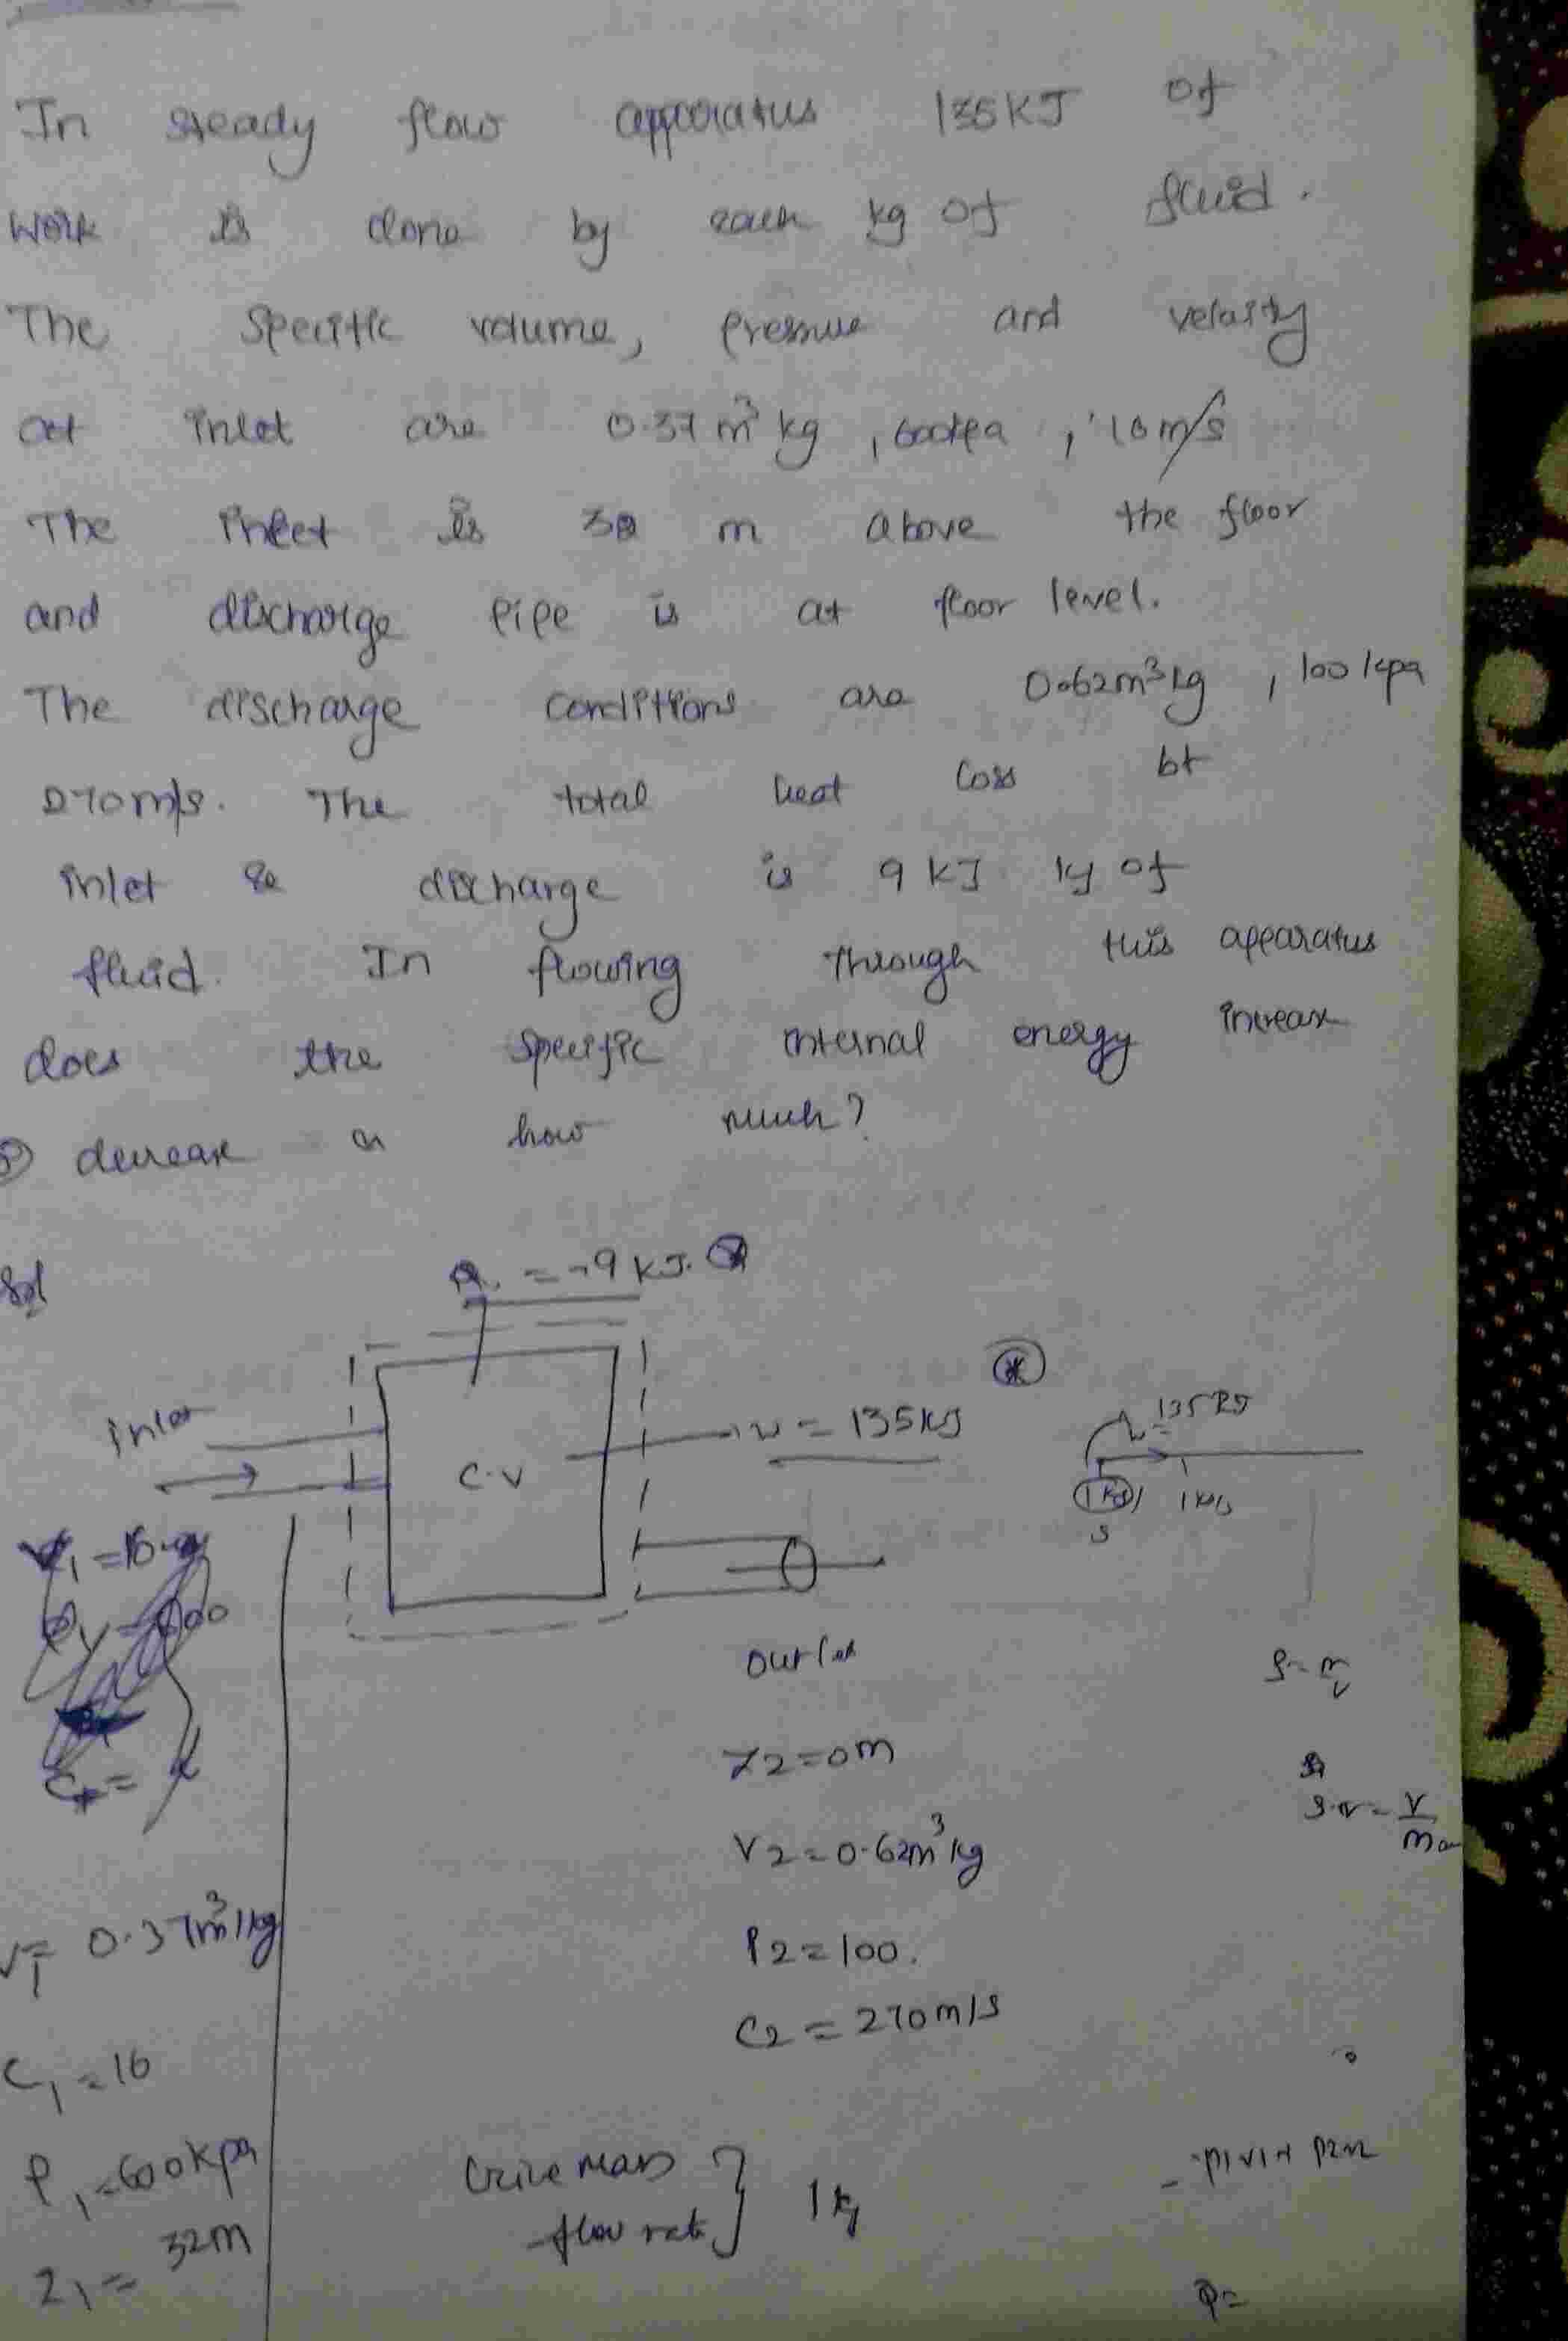 In steady flow apparatus 135KJ of
Work is done by each kg of fluid.
The Specific volume, pressure and velocity
at inlet are 0.37 m³ kg , 600kpa , 16 m/s
The inlet is 32 m above the floor
and discharge pipe is at floor level.
The discharge conditions are 0.62m³kg , 100 kpa
270m/s. The total heat loss bt
inlet & discharge is 9 KJ kg of
fluid. In flowing through this apparatus
does the specific internal energy increase
decrease or how much?
Sol
Q. = -9 KJ.
inlet
C.V
w = 135KJ
135 KJ
outlet
Z2=0m
V2=0.62m³kg
P2=100.
C2=270m/s
V1= 0.37m³/kg
C1=16
P1=600kpa
Z1= 32m
mass
flow rate } 1kg
-P1V1+P2V2
Q=